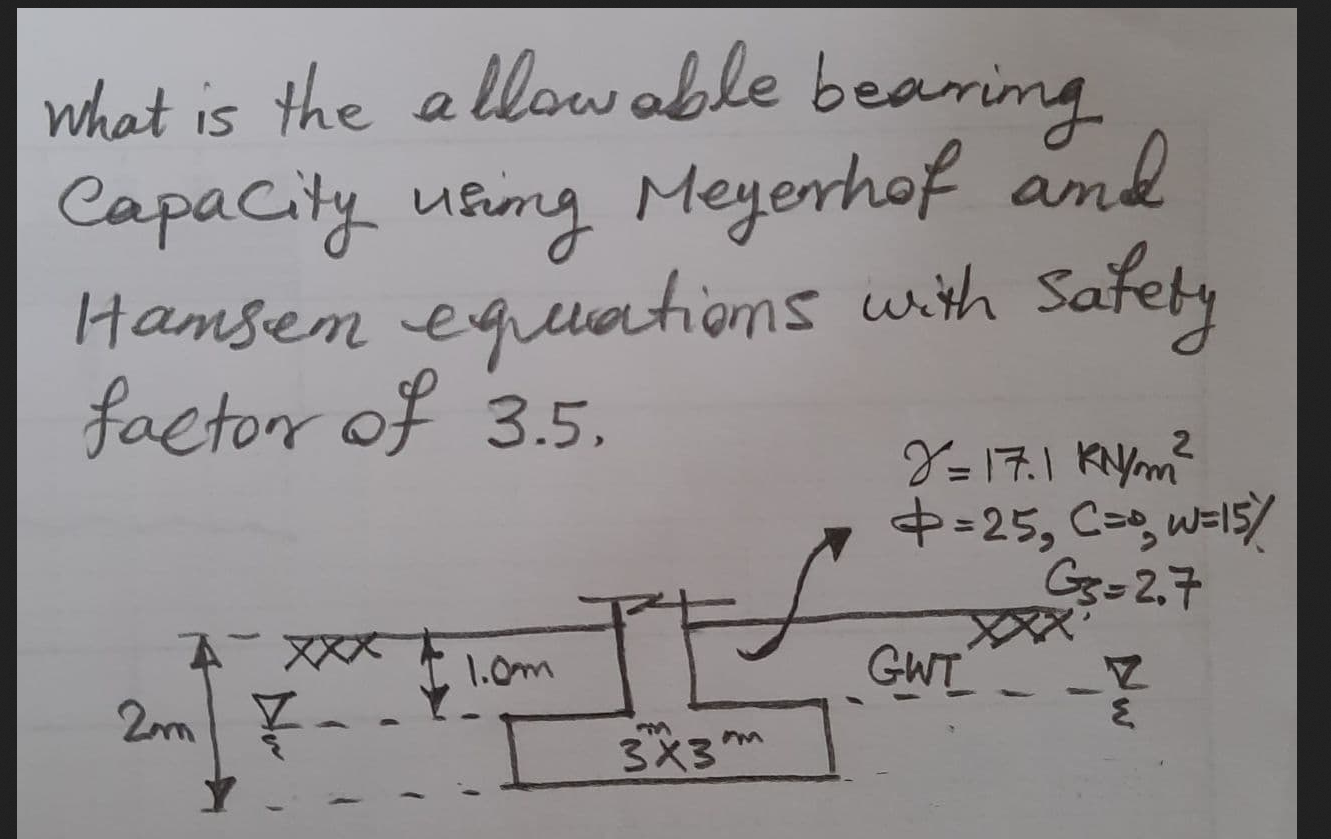 What is the allowable bearing
Capacity using Meyerhof and
Hansen equations with safety
factor of 3.5.
γ=17.1 KN/m²
ϕ=25, C=0, w=15%
Gs=2.7
XXX
XXX
1.0m
GWT
2m
3m×3m